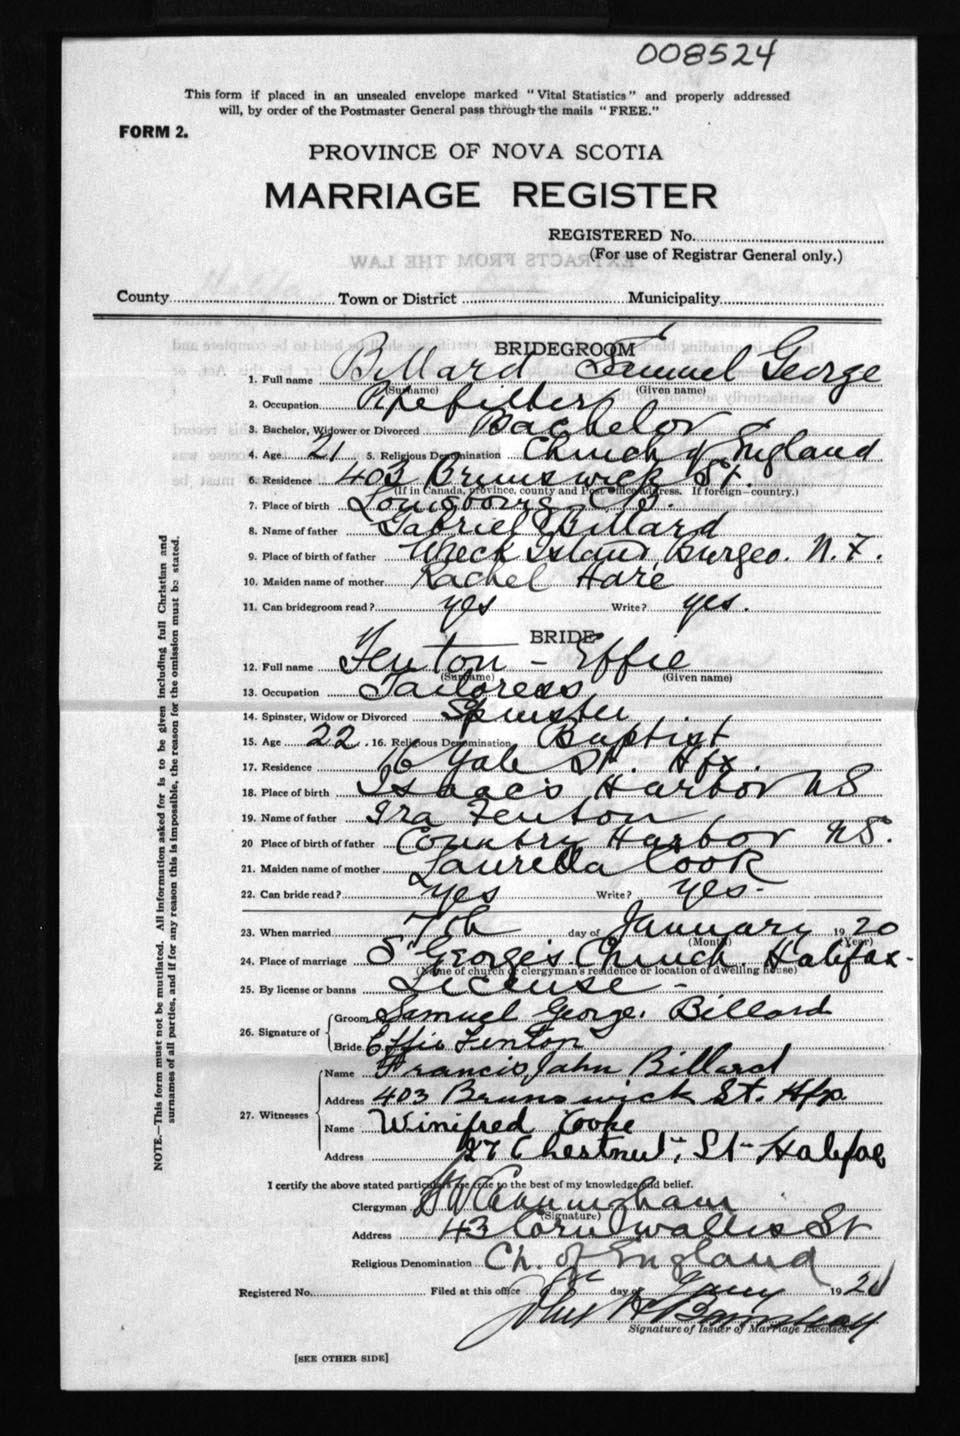 008524
This form if placed in an unsealed envelope marked "Vital Statistics" and properly addressed
will, by order of the Postmaster General pass through the mails "FREE."
FORM 2.
PROVINCE OF NOVA SCOTIA
MARRIAGE REGISTER
REGISTERED No.
(For use of Registrar General only.)
EXTRACTS FROM THE LAW
County Town or District Municipality
BRIDEGROOM
1. Full name Billard Samuel George
(Surname) (Given name)
2. Occupation Pipefitter
3. Bachelor, Widower or Divorced Bachelor
4. Age 21 5. Religious Denomination Church of England
6. Residence 403 Brunswick St.
(If in Canada, province, county and Post office address. If foreign—country.)
7. Place of birth Louisbourg C.B.
8. Name of father Gabriel Billard
9. Place of birth of father Wreck Island, Burgeo. N.F.
10. Maiden name of mother Rachel Hare
11. Can bridegroom read? yes Write? yes.
BRIDE
12. Full name Fenton - Effie
(Surname) (Given name)
13. Occupation Tailoress
14. Spinster, Widow or Divorced Spinster
15. Age 22 16. Religious Denomination Baptist
17. Residence 16 Yale St. Hfx.
18. Place of birth Isaac's Harbor NS
19. Name of father Ira Fenton
20 Place of birth of father Country Harbor NS.
21. Maiden name of mother Lauretta Cook
22. Can bride read? yes Write? yes-
23. When married 7th day of January 1920
(Month) (Year)
24. Place of marriage St George's Church Halifax-
(Name of church or clergyman's residence or location of dwelling house)
25. By license or banns License -
26. Signature of Groom Samuel George Billard
Bride Effie Fenton
27. Witnesses Name Francis John Billard
Address 403 Brunswick St. Hfx.
Name Winifred Cooke
Address 27 Chestnut St- Halifax
I certify the above stated particulars are true to the best of my knowledge and belief.
Clergyman H W Cunningham
(Signature)
Address 43 Cornwallis St
Religious Denomination Ch. of England
Registered No. Filed at this office day of Jany 1920
Signature of Issuer of Marriage Licenses.
[SEE OTHER SIDE]
NOTE.—This form must not be mutilated. All information asked for is to be given including full Christian and
surnames of all parties, and if for any reason this is impossible, the reason for the omission must be stated.